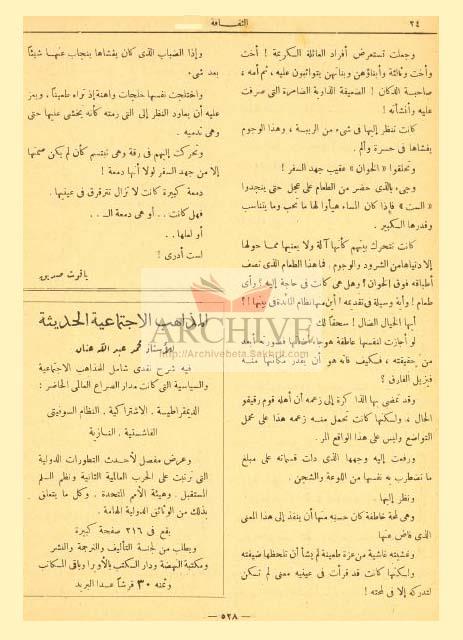 ٢٤
الثقافة
وجعلت تستعرض أفراد العائلة الكريمة ! أخت
وأخت وثالثة وأبناؤهن وبناتهن يتواثبون عليه ، ثم أمه ،
صاحبة الدكان ! الضعيفة الذاوية الضامرة التى صرفت
عليه وأنشأته !
كانت تنظر إليها فى شىء من الريبة ، وهذا الوجوم
يغشاها فى حسرة وألم .
وتحلقوا « الخوان » عقيب جهد السفر !
وجىء بالذى حضر من الطعام على عجل حتى يتجدوا
« الست » فإذا كان المساء هيأوا لها ما تحب وما يتناسب
وقدرها الكبير .
كانت تتحرك بينهم كأنها آلة ولا يعنيها مما حولها
إلا دنياها من الشرود والوجوم . فما هذا الطعام الذى نصف
أطباقه فوق الخوان ؟ وهل هى كانت فى حاجة إليه ؟ وأى
طعام ! وأية وسيلة فى تقديمه ! أين منها نظام المائدة فى بيتها ! ؟
أيها الخيال الضال ! سحقاً لك
لو أجازت لنفسها عاطفة هوجاء
من حقيقته ، فكيف فاته هو أن يقدر مكانتها منه
فيزيل الفارق ؟
وقد تمضى بها الذاكرة إلى زعمه أن أهله قوم رقيقو
الحال ، ولكنها كانت تحمل منه زعمه هذا على محمل
التواضع وليس على هذا الواقع المر .
ورفعت إليه وجهها الذى دلت قسماته على مبلغ
ما تضطرب به نفسها من اللوعة والشجن .
ونظر إليها .
وهى لمحة خاطفة كان حسبه منها أن ينفذ إلى هذا المعنى
الذى فاض عنها
وغشيته غاشية من عزة طعينة لم يشأ أن تلحظها ضيفته
ولكنها كانت قد قرأت فى عينيه معنى لم تكن
لتدركه إلا فى لمحته !
وإذا الضباب الذى كان يغشاها ينجاب عنها شيئاً
بعد شىء .
واختلجت نفسها خلجات واهنة إذ تراه طعيناً ، ويعز
عليه أن يعاود النظر إلى التى رمته كأنه يخشى عليها حتى
وهى تدميه .
وتحركت إليهم فى رقة وهى تبتسم كأن لم يكن صمتها
إلا من جهد السفر لولا أنها دمعة !
دمعة كبيرة كانت لا تزال تترقرق فى عينيها .
فهل كانت . . أو هى دمعة الـ . .
أو لعلها . .
لست أدرى !
ياقوت صديق
المذاهب الاجتماعية الحديثة
للأستاذ محمد عبد الله عنان
فيه شرح نقدى شامل للمذاهب الاجتماعية
والسياسية التى كانت مدار الصراع العالمى الحاضر :
الديمقراطية . الاشتراكية . النظام السوفيتى
الفاشستية . النازية
وعرض مفصل لأحدث التطورات الدولية
التى ترتبت على الحرب العالمية الثانية ونظم السلم
المستقبل . وهيئة الأمم المتحدة . وكل ما يتعلق
بذلك من الوثائق الدولية الهامة .
يقع فى ٢١٦ صفحة كبيرة
ويطلب من لجنة التأليف والترجمة والنشر
ومكتبة النهضة ودار الكتب بالأوبرا وباقى المكاتب
وثمنه ٣٠ قرشاً عدا البريد
ARCHIVE
http://Archivebeta.Sakhrit.com
— ٥٢٨ —